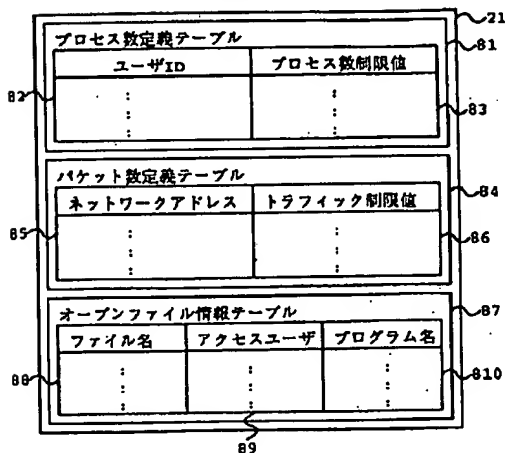 21
プロセス数定義テーブル
81
ユーザID
プロセス数制限値
82
83
パケット数定義テーブル
84
ネットワークアドレス
トラフィック制限値
85
86
オープンファイル情報テーブル
87
ファイル名
アクセスユーザ
プログラム名
88
810
89